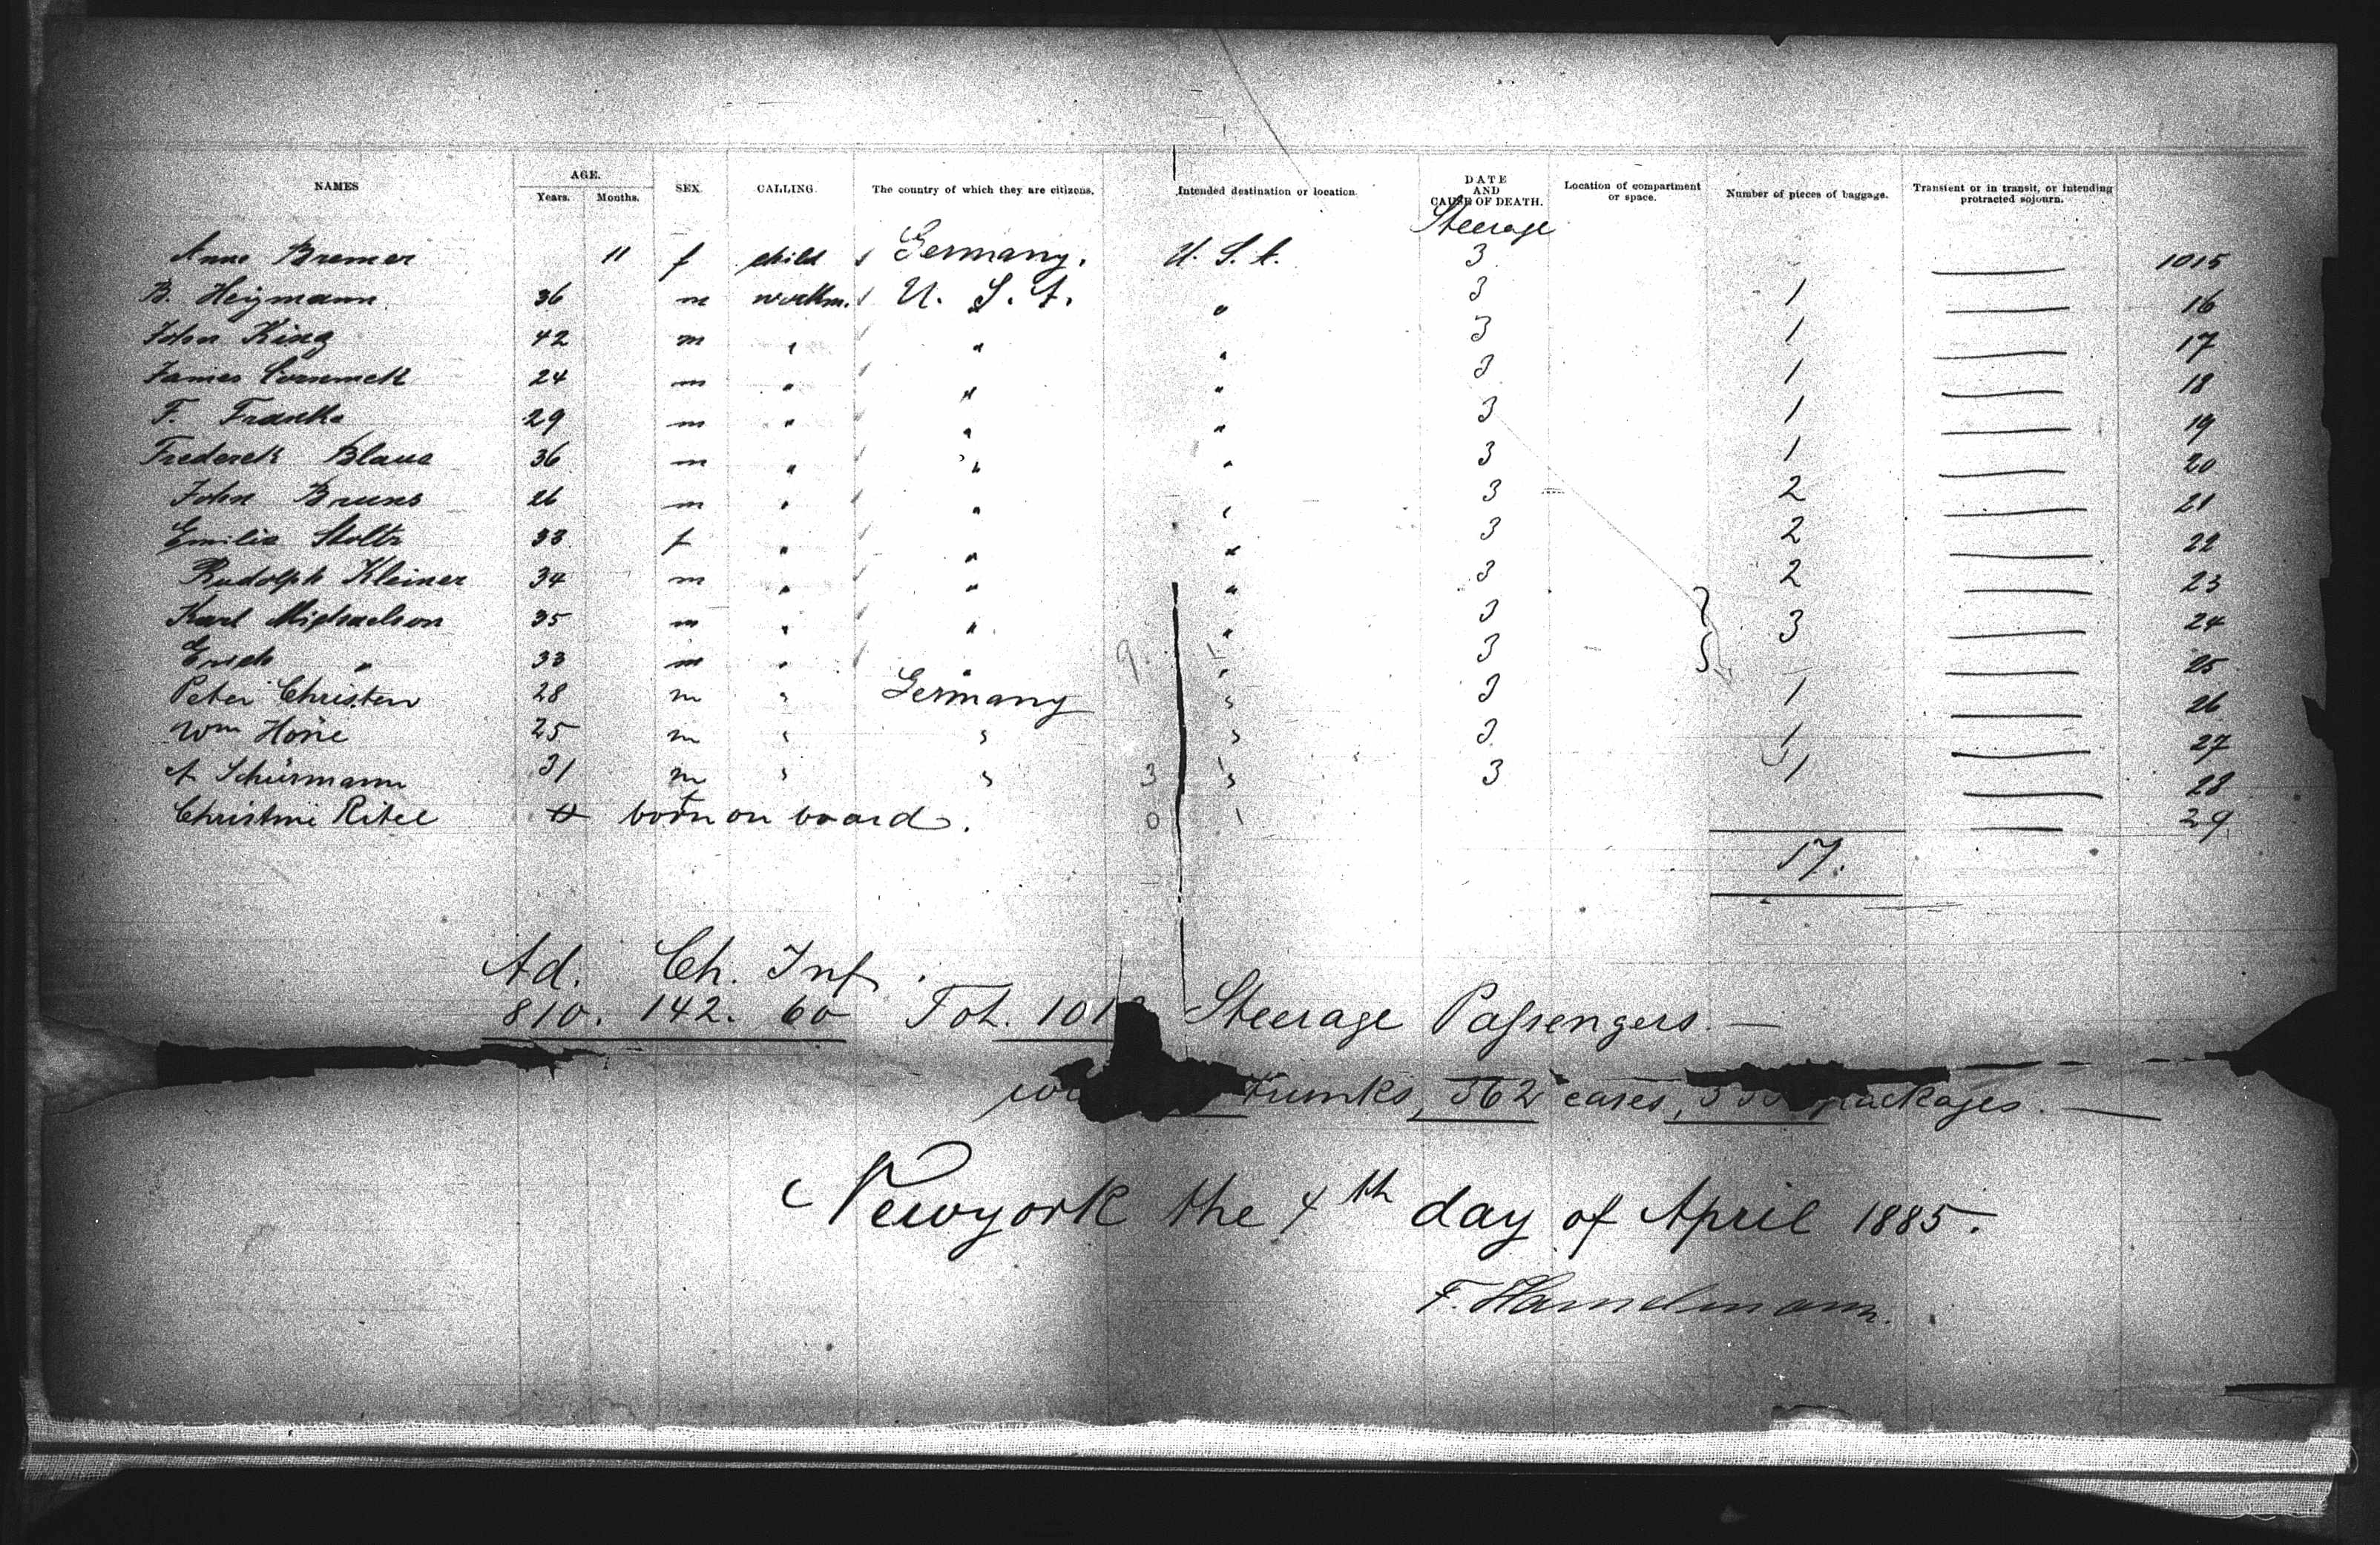 NAMES AGE. Years. Months. SEX. CALLING. The country of which they are citizens. Intended destination or location. DATE AND CAUSE OF DEATH. Location of compartment or space. Number of pieces of baggage. Transient or in transit, or intending protracted sojourn.
Steerage
Anna Bremer 11 f child Germany. U. S. A. 3 1015
B. Heymann 36 m workm. U. S. A. " 3 1 16
John King 42 m " " " 3 1 17
James 24 m " " " 3 1 18
F. Franke 29 m " " " 3 1 19
Frederek Blaue 36 m " " " 3 1 20
John Bruns 26 m " " " 3 2 21
Emilie Stoltz 33 f " " " 3 2 22
Rudolph Kleiner 34 m " " " 3 2 23
Karl Michaelson 35 m " " " 3 3 24
Erich " 33 m " " 9. " 3 25
Peter Christen 28 m " Germany " 3 1 26
Wm 25 m " " " 3 1 27
A Schürmann 31 m " " 3 " 3 1 28
Christine born on board. 0 29
17.
Ad. Ch. Inf.
810. 142. 60 Tot. 101 Steerage Passengers. —
Trunks, 562 cases, packages. —
Newyork the 4th day of April 1885.
F. Hamelmann.